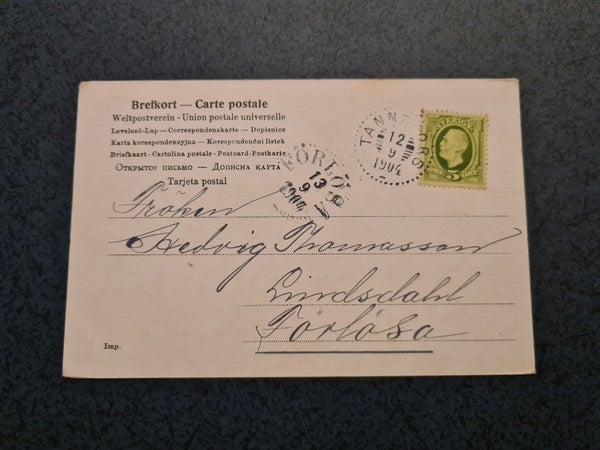 Brefkort — Carte postale
Weltpostverein - Union postale universelle
Levelező-Lap — Correspondenzkarte — Dopisnice
Karta korespondencyjna — Korespondenční lístek
Briefkaart - Cartolina postale - Postcard - Postkarte
Открытое письмо — Дописна карта
Tarjeta postal
TANNEFORS
12
9
1904
SVERIGE
5
ÖRE
FÖRLÖSA
13
9
1904
Fröken
Hedvig Thomasson
Lindsdahl
Förlösa
Imp.